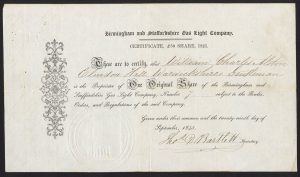 Birmingham and Staffordshire Gas Light Company.
CERTIFICATE, £50 SHARE, 1825.
These are to certify, that William Charles
Hall Warwickshire Gentleman
is the Proprietor of One Original Share of the Birmingham and
Staffordshire Gas Light Company, Number 7 subject to the Rules,
Orders, and Regulations of the said Company.
Given under their common seal the twenty ninth day of
September, 1825.
Jno. D. Bartlett Secretary